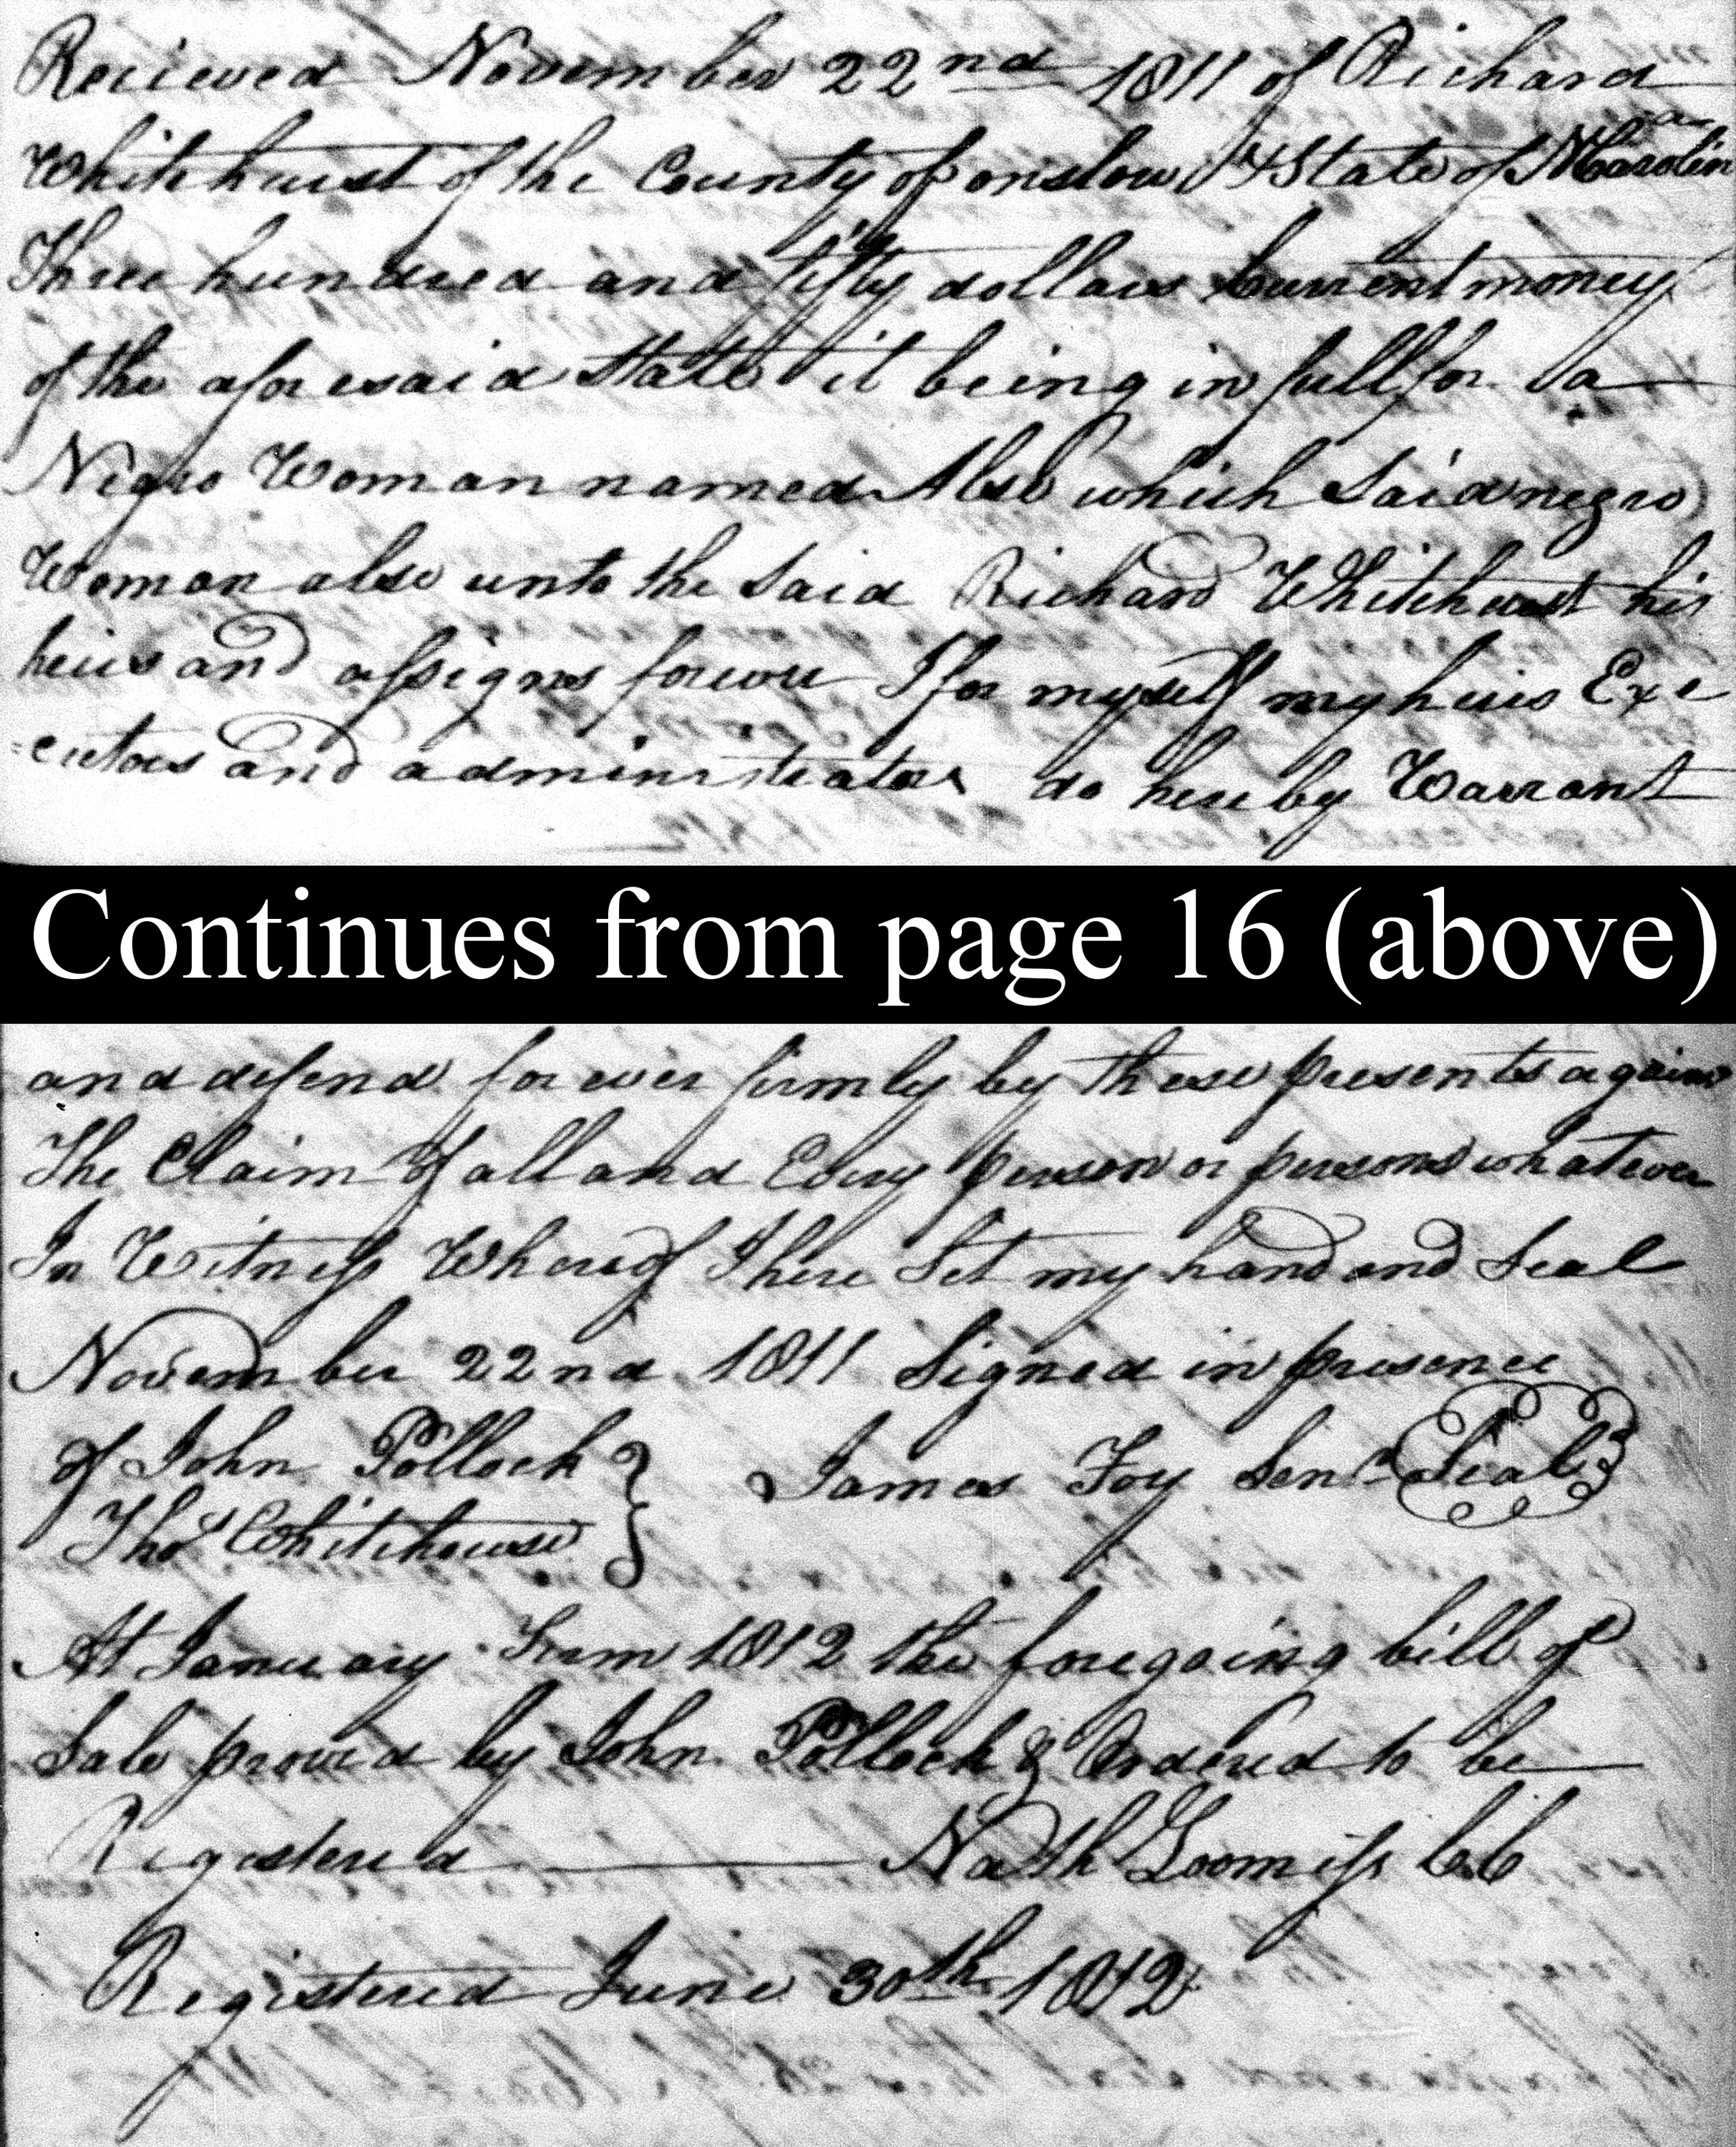 Recieved November 22nd 1811 of Richard
Whitehurst of the County of onslow & State of N Carolina
Three hundred and fifty dollars Current money
of the aforesaid State it being in full for a
Negro Woman named Also which Said negro
Woman also unto the Said Richard Whitehurst his
heirs and assigns forever I for myself my heirs Exe
=cutors and administrators do hereby Warrant
Continues from page 16 (above)
and defend for ever firmly by these presents against
The Claim of all and Every person or persons whatever
In Witness Whereof I here Set my hand and Seal
November 22nd 1811 Signed in presence
of John Pollock } James Foy Senr Seal
Thos Whitehouse
At January Term 1812 the foregoing bill of
Sale proved by John Pollock & Ordered to be
Registered Nath Loomiss CC
Registered June 30th 1812